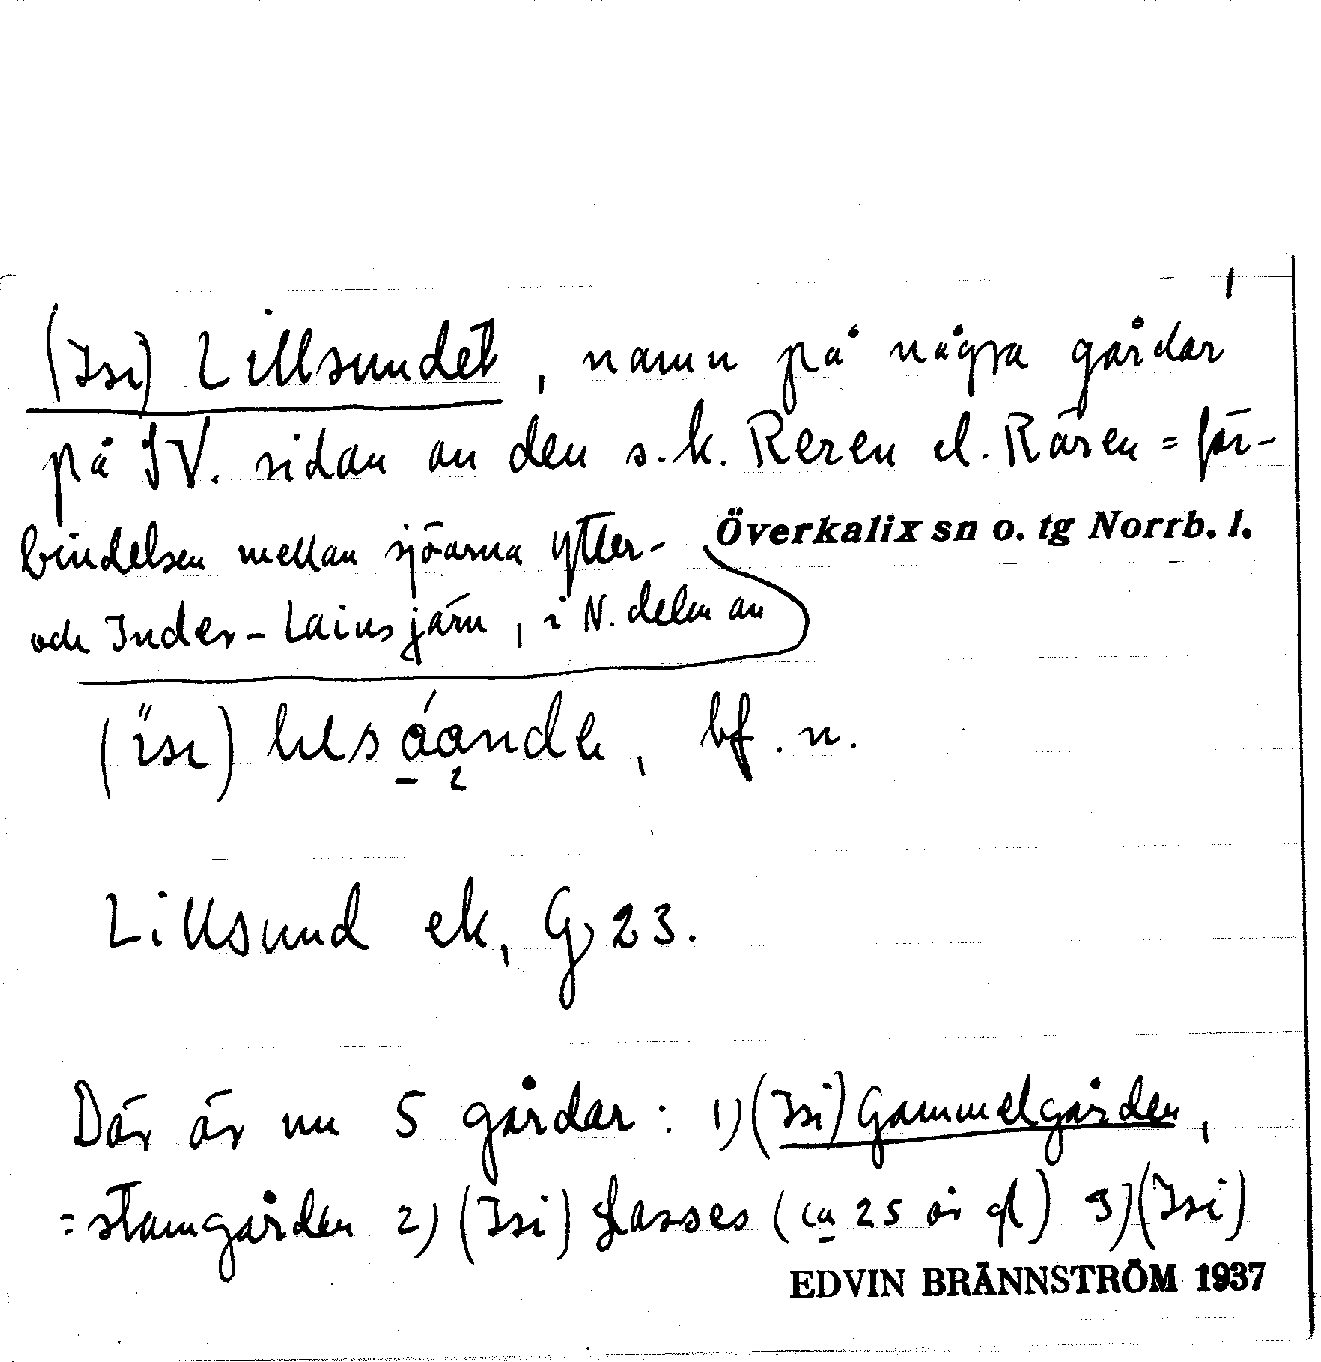 1
(Isi) Lillsundet, namn på några gårdar
på SV. sidan av den s.k. Reren el. Rären = för-
bindelsen mellan sjöarna Ytter-
och Inder-Lainsjärn, i N. delen av
Överkalix sn o. tg Norrb. l.
bf. n.
Lillsund ek, G 23.
Där är nu 5 gårdar: 1) (Isi) Gammelgården,
= stamgården 2) (Isi) Lasses (ca 25 år gl) 3) (Isi)
EDVIN BRÄNNSTRÖM 1937